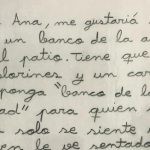 Ana, me gustaría
un banco de la a
l patio. Tiene que
olorines y un car
ponga "banco de la
ad" para quien s
solo se siente
en le ve sentado